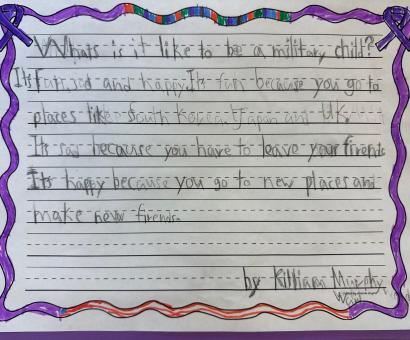 Whats is it like to be a military child?
It's fun, sad and happy. Its fun because you go to
places like South Korea, Japan and UK.
Its sad because you have to leave your firends
Its happy because you go to new places and
make new firends.
by Killian Murphy